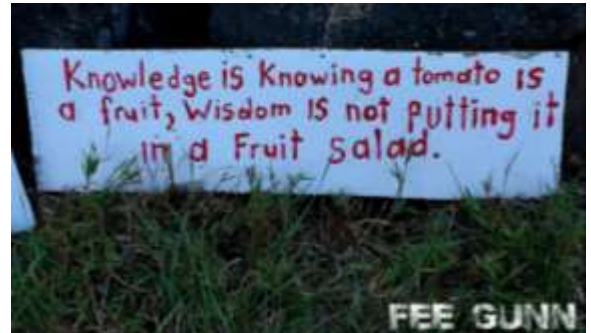 Knowledge is Knowing a tomato is
a fruit, Wisdom is not Putting it
in a Fruit salad.
FEE GUNN